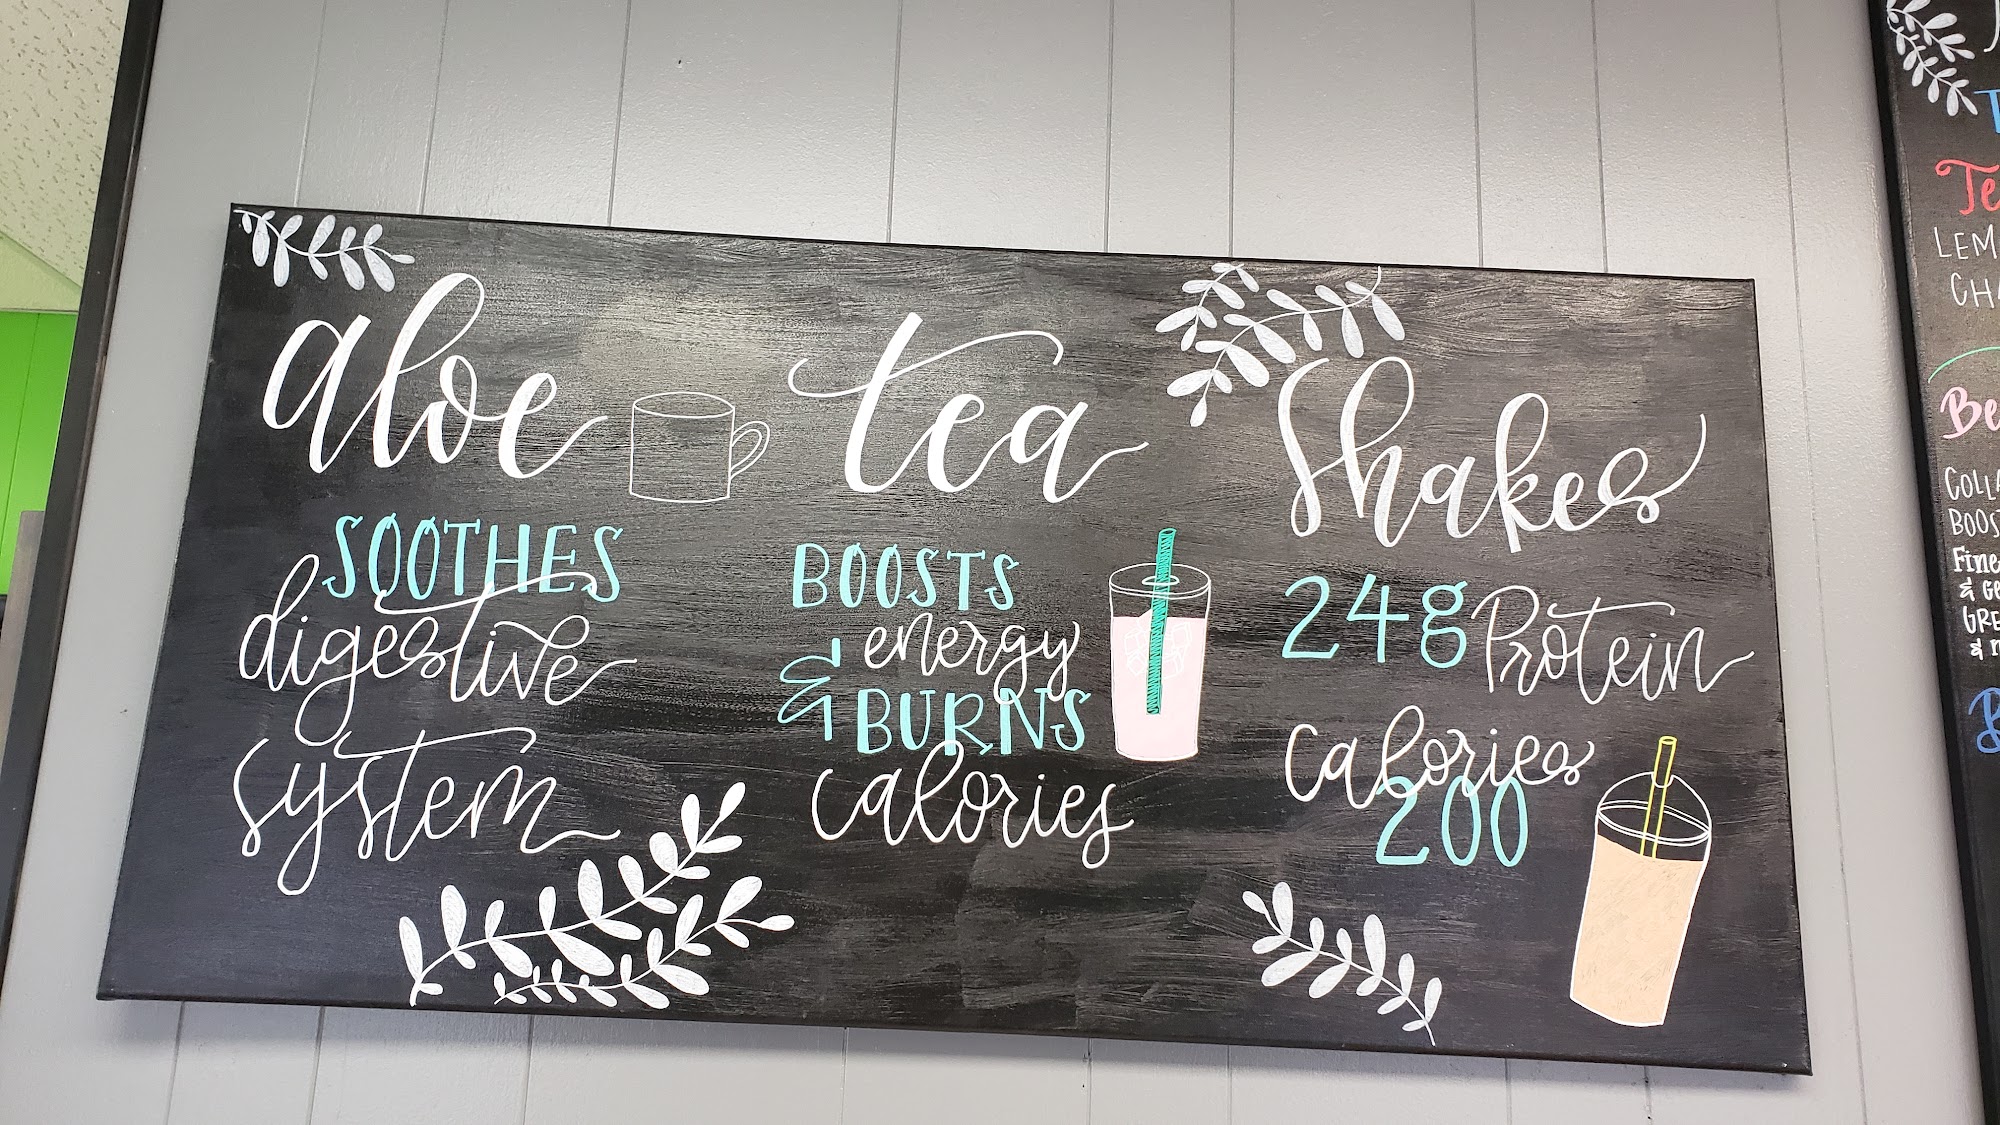 aloe
SOOTHES
digestive
system
tea
BOOSTS
energy
& BURNS
calories
Shakes
24g Protein
calories
200
BOOS
Fine
&
&